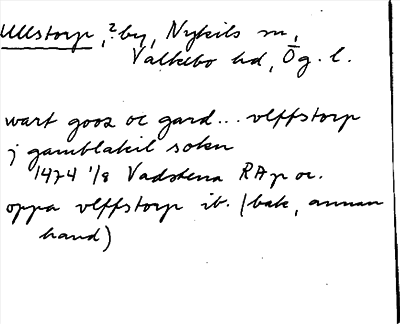 Ullstorp, ?by, Nykils sn,
Valkebo hd, Ög. l.
wart goos oc gard... vlffstorp
j gamblakil sokn
1474 1/8 Vadstena RAp or.
oppa vlffstorp ib. (bak, annan
hand)